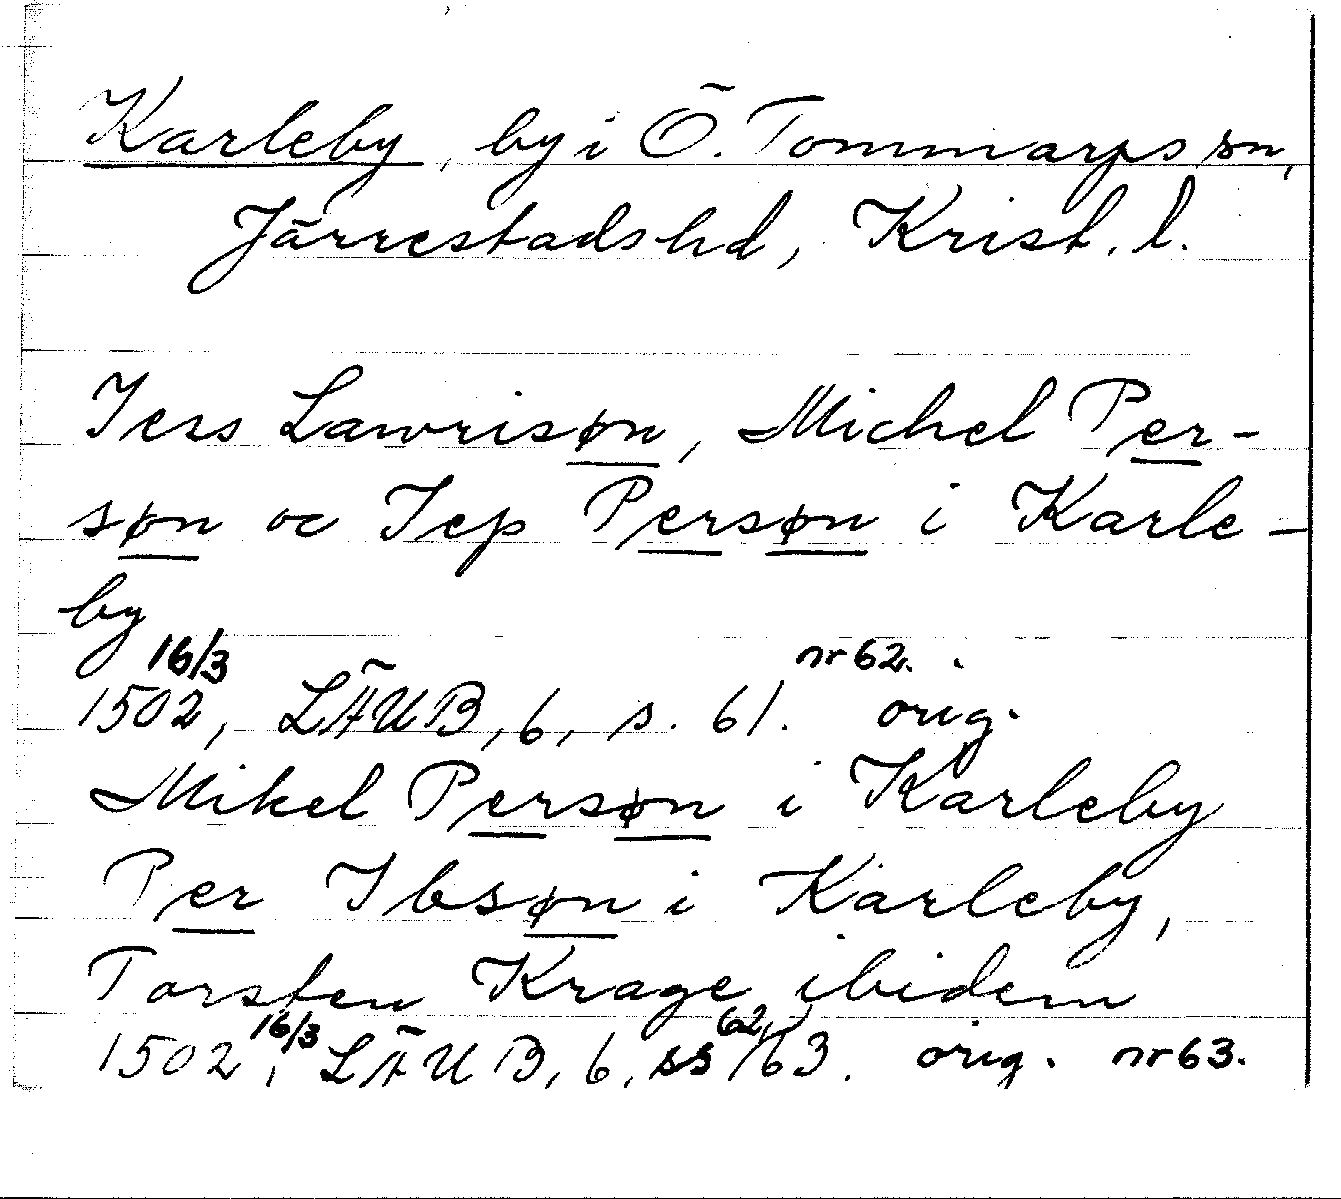 Karleby, by i Ö. Tommarps sn,
Järrestads hd, Krist. l.
Jens Lawrisøn, Michel Per-
søn oc Jep Persøn i Karle-
by
16/3 nr 62.
1502, LÄUB, 6, s. 61. orig.
Mikel Persøn i Karleby
Per Ibsøn i Karleby,
Torsten Krage ibidem
1502 16/3, LÄUB, 6, ss 62, 63. orig. nr 63.